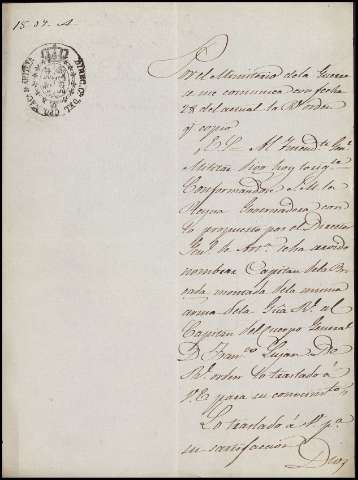 Por el Ministerio de la Guerra
se me comunica con fecha
28 del actual la Rl orden
qe copio
Al Intendte Gral
Militar digo hoy lo sigte
Conformandose S. M. la
Reyna Governadora con
lo propuesto por el Director
Genl de Arta se ha servido
nombrar Capitan de la Bri
gada montada de la misma
arma de la Gua Rl al
Capitan del cuerpo General
D Franco Lujan De
Rl orden lo traslado á
V.E para su conocimto
Lo traslado á V. pa
su satisfaccion
Dios